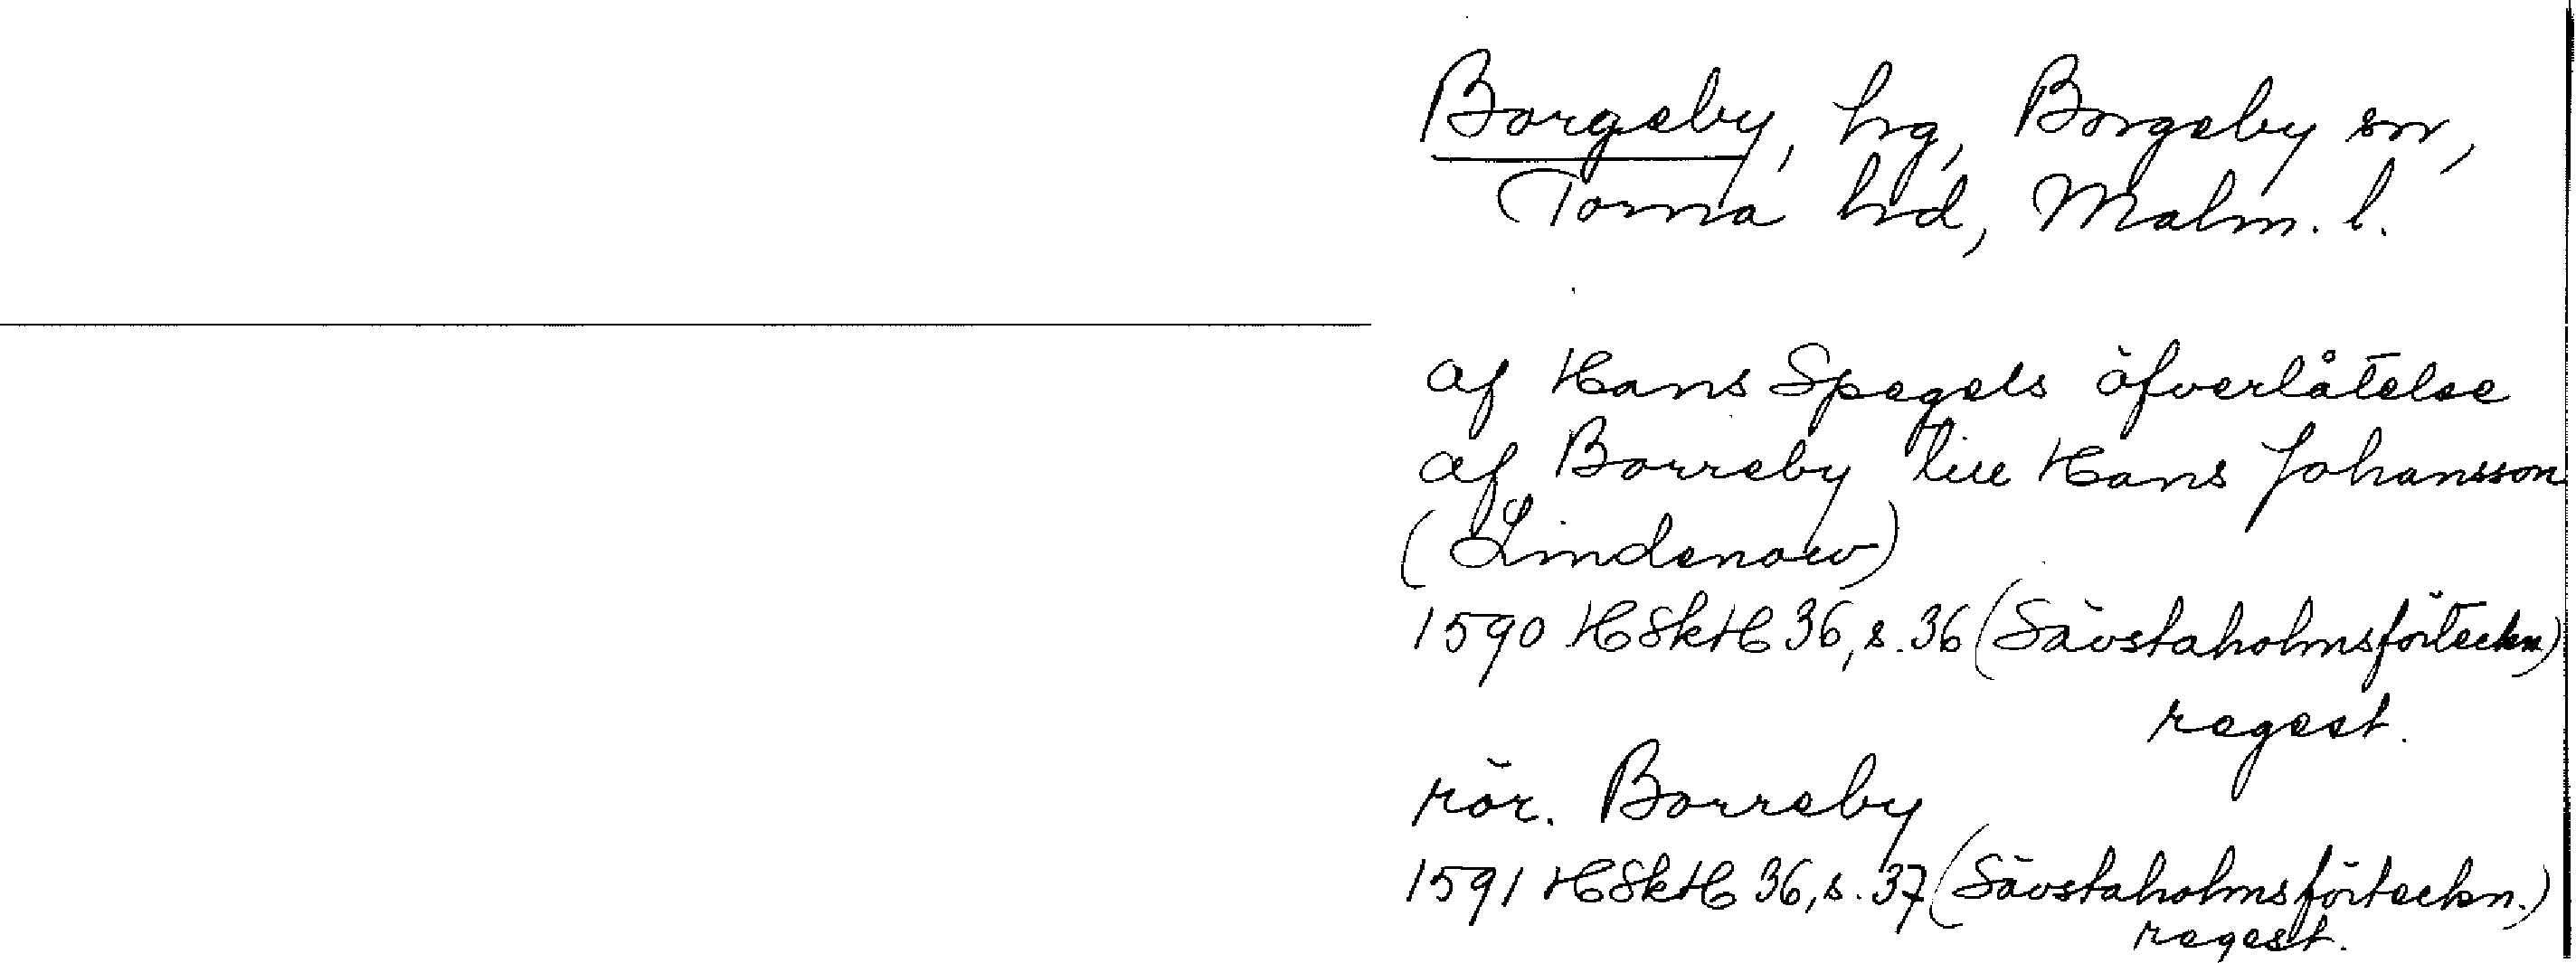 Borgeby, hg, Borgeby sn,
Torna hd, Malm. l.
af Hans Spegels öfverlåtelse
af Borreby till Hans Johansson
(Lindenow)
1590 HSkH 36, s. 36 (Sävstaholmsförteckn)
regest.
rör. Borreby
1591 HSkH 36, s. 37 (Sävstaholmsförteckn.)
regest.